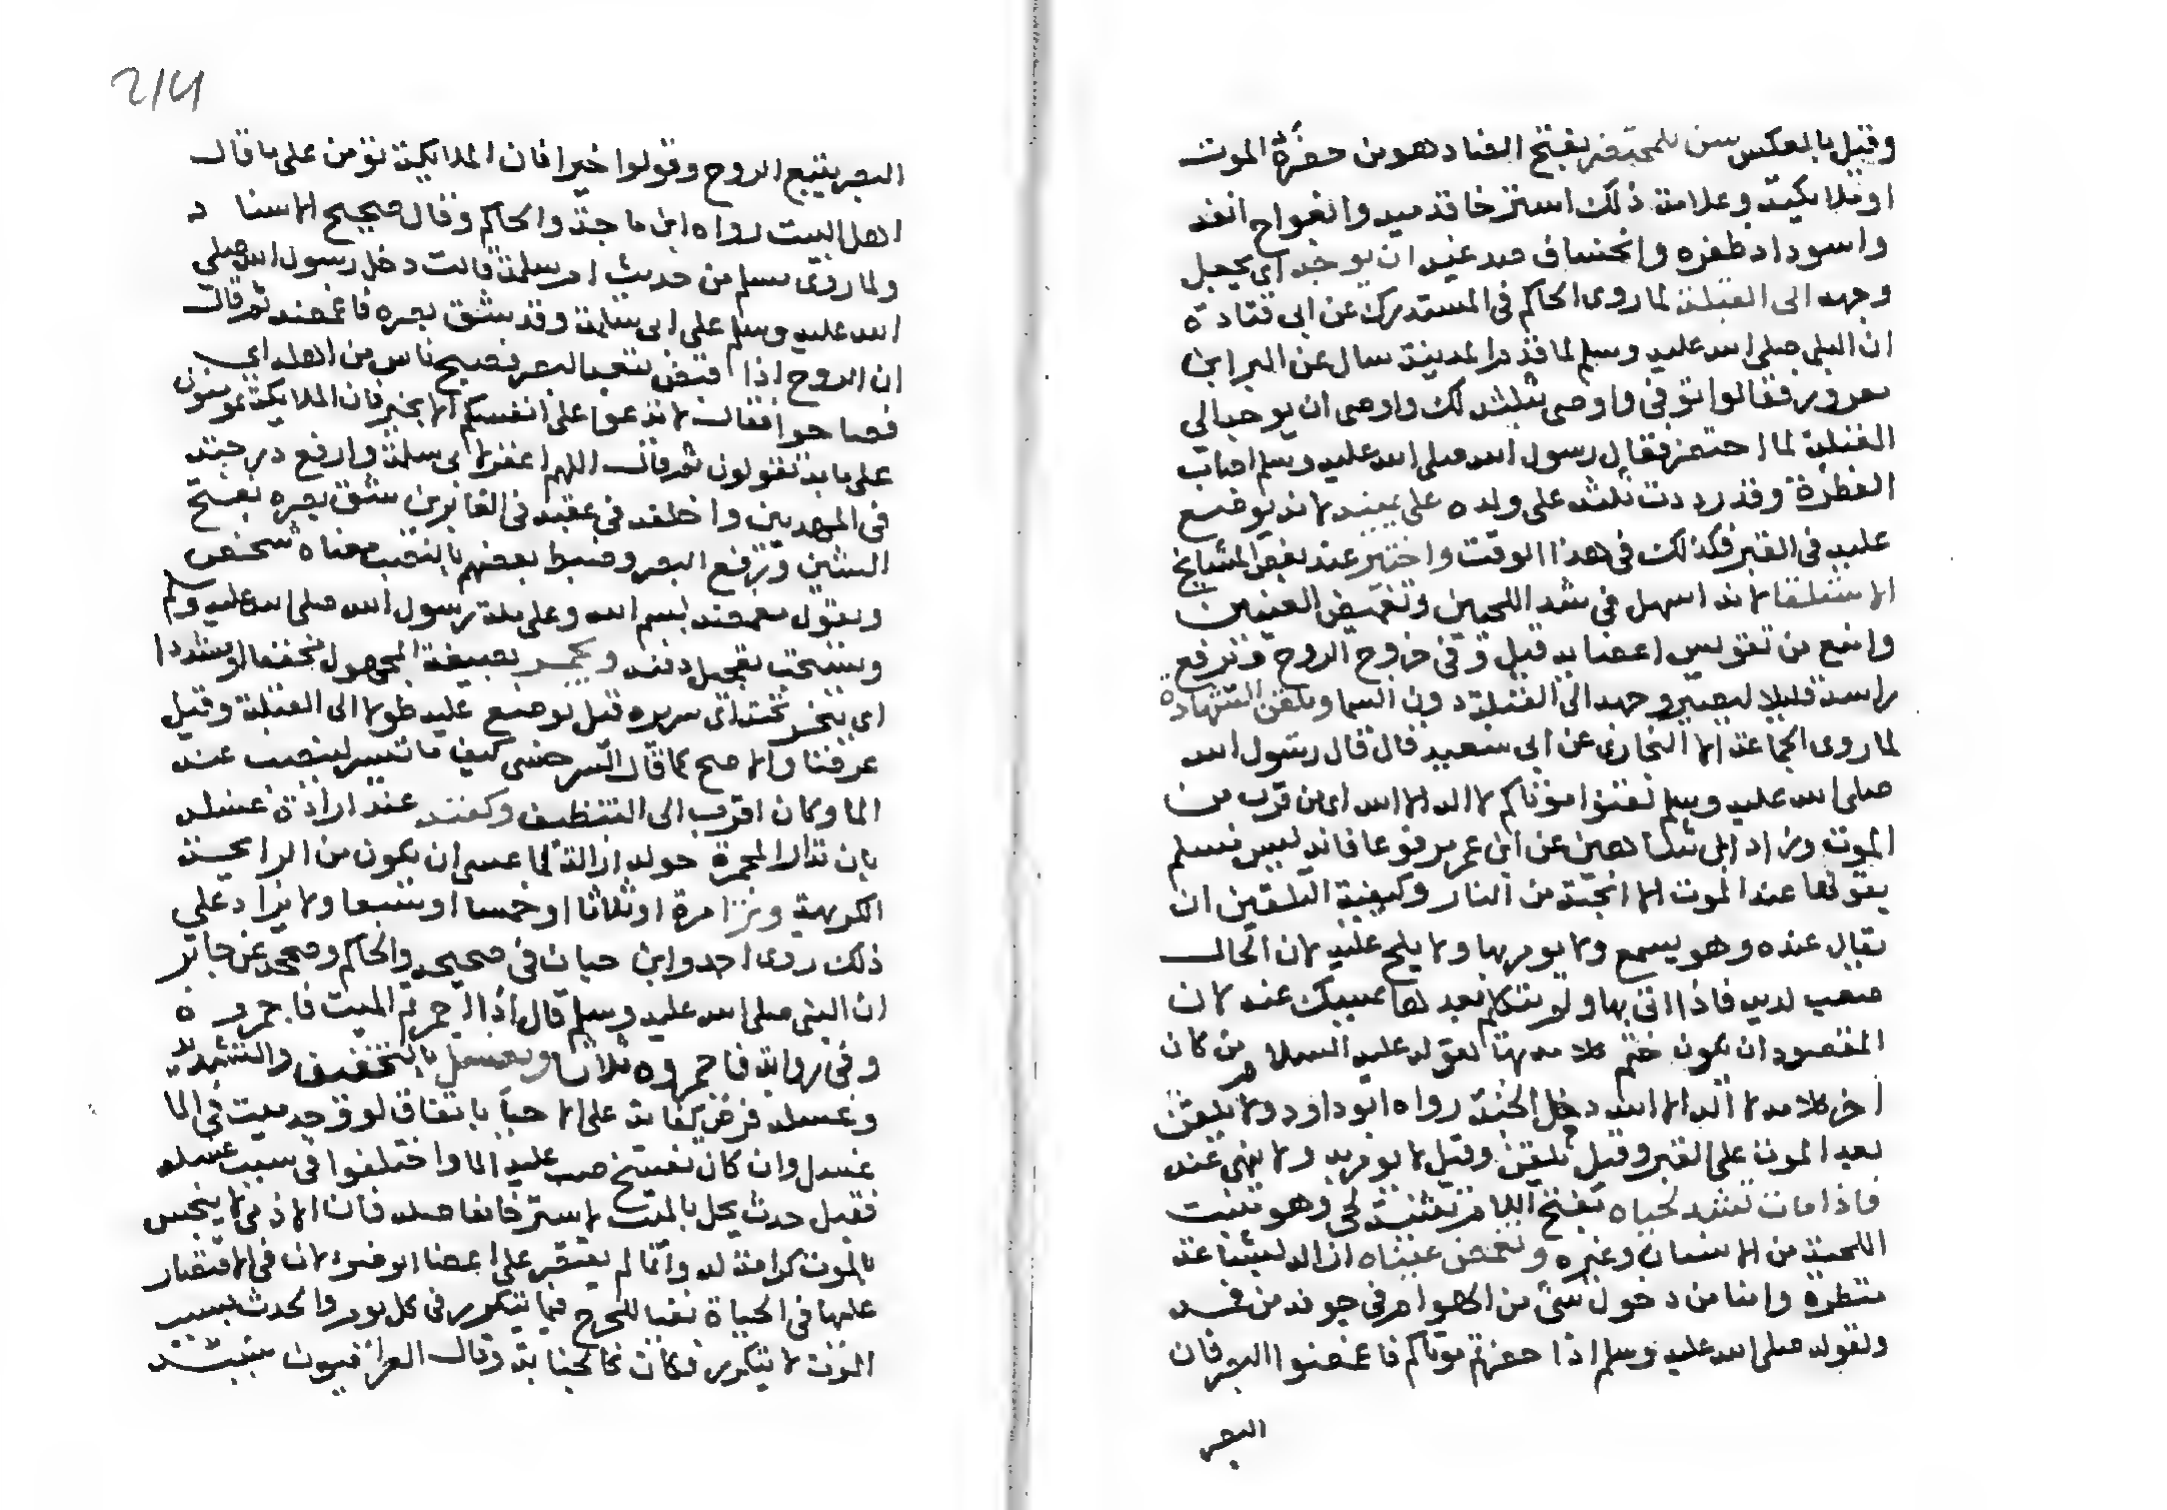 وقيل بالعكس سن للمحتضر بفتح الضاد هو من حضرة الموت
او ملائكته وعلامة ذلك استرخا قدميه وانعواج انفه
واسوداد ظفره وانخساف صدغيه ان يوجه اي يجعل
وجهه الى القبلة لما روى الحاكم في المستدرك عن ابى قتادة
ان النبي صلى الله عليه وسلم لما قدم المدينة سال عن البرا بن
معرور فقالوا توفى واوصى بثلثه لك واوصى ان يوجه الى
القبلة لما احتضر فقال رسول الله صلى الله عليه وسلم اصاب
الفطرة وقد رددت ثلثه على ولده على يمينه لانه يوضع
عليه في القبر فكذلك في هذا الوقت واختير عند بعض المشايخ
الاستلقا لانه اسهل في شد اللحيين وتغميض العينين
وامنع من تقويس اعضايه قيل وفى خروج الروح وترفع
راسه قليلا ليصير وجهه الى القبلة دون السما ويلقن الشهادة
لما روى الجماعة الا البخارى عن ابى سعيد قال قال رسول الله
صلى الله عليه وسلم لقنوا موتاكم لا اله الا الله اى من قرب من
الموت وزاد ابن شاهين عن ابن عمر مرفوعا فانه ليس مسلم
يقولها عند الموت الا انجته من النار وكيفية التلقين ان
يقال عنده وهو يسمع ولا يومر بها ولا يلح عليه لان الحال
صعب لديه فاذا اتى بها ولم يتكلم بعدها يمسك عنه لان
المقصود ان يكون ختم كلامه بها لقوله عليه السلام من كان
اخر كلامه لا اله الا الله دخل الجنة رواه ابو داود ولا يلقن
بعد الموت على القبر وقيل يلقن وقيل لا يومر به ولا ينهى عنه
فاذا مات تشد لحياه بفتح اللام تثنية لحى وهو منبت
اللحية من الانسان وغيره وتغمض عيناه ازالة لبشاعة
منظره وامنا من دخول شئ من الهوام في جوفه من فمه
ولقوله صلى الله عليه وسلم اذا حضرتم موتاكم فاغمضوا البصر فان
البصر
214
البصر يتبع الروح وقولوا خيرا فان الملايكة تؤمن على ما قال
اهل البيت رواه ابن ماجة والحاكم وقال صحيح الاسناد
ولما روى مسلم من حديث ام سلمة قالت دخل رسول الله صلى
الله عليه وسلم على ابى سلمة وقد شق بصره فاغمضه ثم قال
ان الروح اذا قبض تبعه البصر فصيح ناس من اهله اي
فصاحوا فقال لا تدعوا على انفسكم الا بخير فان الملايكة يؤمنون
على ما تقولون ثم قال اللهم اغفر لابى سلمة وارفع درجته
في المهديين واخلفه في عقبه في الغابرين شق بصره بفتح
الشين وترفع البصر وضبط بعضهم بالنصب معناه شخص
ويقول مغمضه بسم الله وعلى ملة رسول الله صلى الله عليه وسلم
ويستحب تعجيل دفنه ويجمر بصيغة المجهول مخففا او مشددا
اي يبخر تخته اي سريره قبل يوضع عليه طولا الى القبلة وقيل
عرضا والاصح كما قال السرخسى كيف ما تيسر لينصب عنه
الما وكان اقرب الى التنظيف وكفنه عند ارادة غسله
بان تدار المجمرة حوله ازالة لما عسى ان يكون من الرائحة
الكريهة وترا مرة او ثلاثا او خمسا او سبعا ولا يزاد على
ذلك روى احمد وابن حبان في صحيحه والحاكم وصححه عن جابر
ان النبى صلى الله عليه وسلم قال اذا اجمرتم الميت فاجمروه
وفى رواية فاجمروه ثلاثا ويغسل بالتخفيف والتشديد
وغسله فرض كفاية على الاحيا باتفاق لو وجد ميت في الما
غسل وان كان تفسخ صب عليه الما واختلفوا في سبب غسله
فقيل حدث يحل بالميت لاسترخا مفاصله فان الادمى لا ينجس
بالموت كرامة له وانما لم يقتصر على اعضا الوضوء لان في الاقتصار
عليها في الحياة نفيا للحرج فيما يتكرر في كل يوم والحدث بسبب
الموت لا يتكرر فكان كالجنابة وقال العراقيون سببه